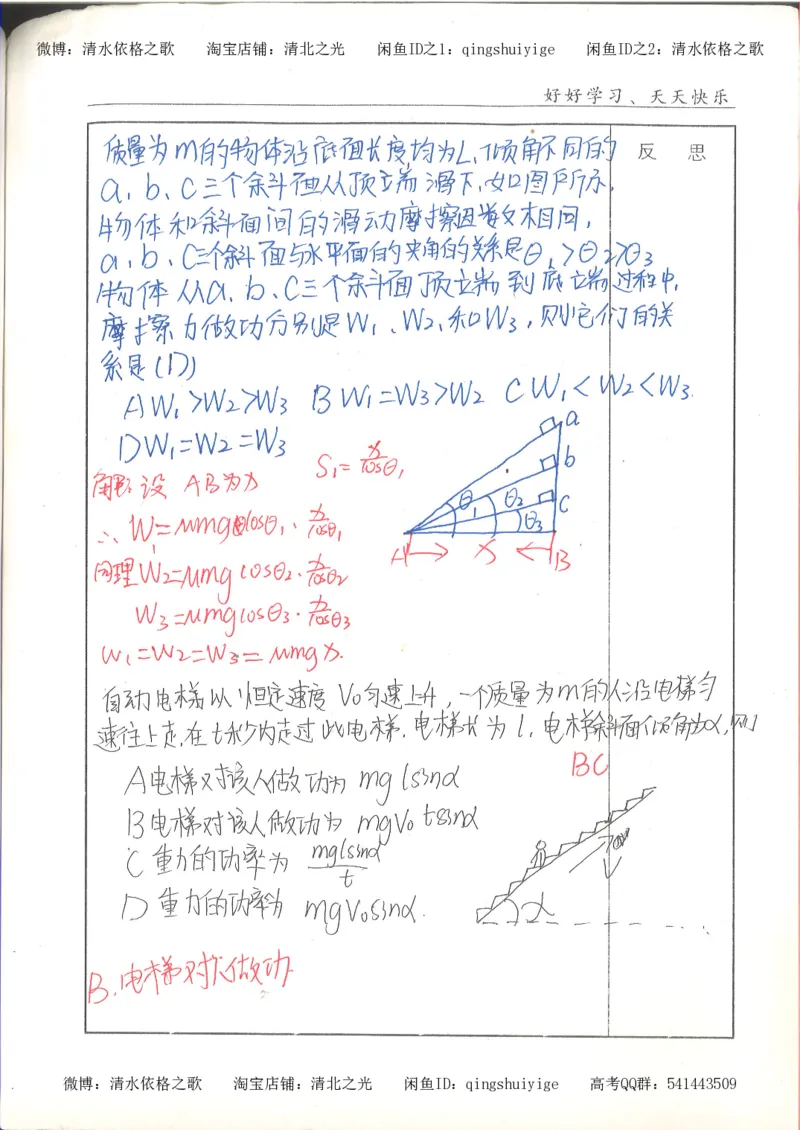 微博：清水依格之歌 淘宝店铺：清北之光 闲鱼ID之1：qingshuiyige 闲鱼ID之2：清水依格之歌
好好学习、天天快乐
反 思
质量为m的物体沿底面长度均为L、倾角不同的
a、b、c三个斜面从顶端滑下,如图所示,
物体和斜面间的滑动摩擦因数相同,
a、b、c三个斜面与水平面的夹角的关系是θ1>θ2>θ3
物体从a、b、c三个斜面顶端到底端过程中,
摩擦力做功分别是W1、W2、和W3,则它们的关
系是(D)
A W1>W2>W3 B W1=W3>W2 C W1<W2<W3
D W1=W2=W3
解:设 AB为x S1=x/cosθ1
∴W1=μmgcosθ1·x/cosθ1
同理W2=μmgcosθ2·x/cosθ2
W3=μmgcosθ3·x/cosθ3
W1=W2=W3=μmgx.
a
b
c
θ1 θ2 θ3
A x B
自动电梯以恒定速度V0匀速上升,一个质量为m的人沿电梯匀
速往上走,在t秒内走过此电梯,电梯长为l,电梯斜面倾角为α,则
BC
A电梯对该人做功为mglsinα
B电梯对该人做功为mgV0tsinα
C重力的功率为mglsinα/t
D重力的功率为mgV0sinα.
α
B.电梯对人做功
微博：清水依格之歌 淘宝店铺：清北之光 闲鱼ID：qingshuiyige 高考QQ群：541443509